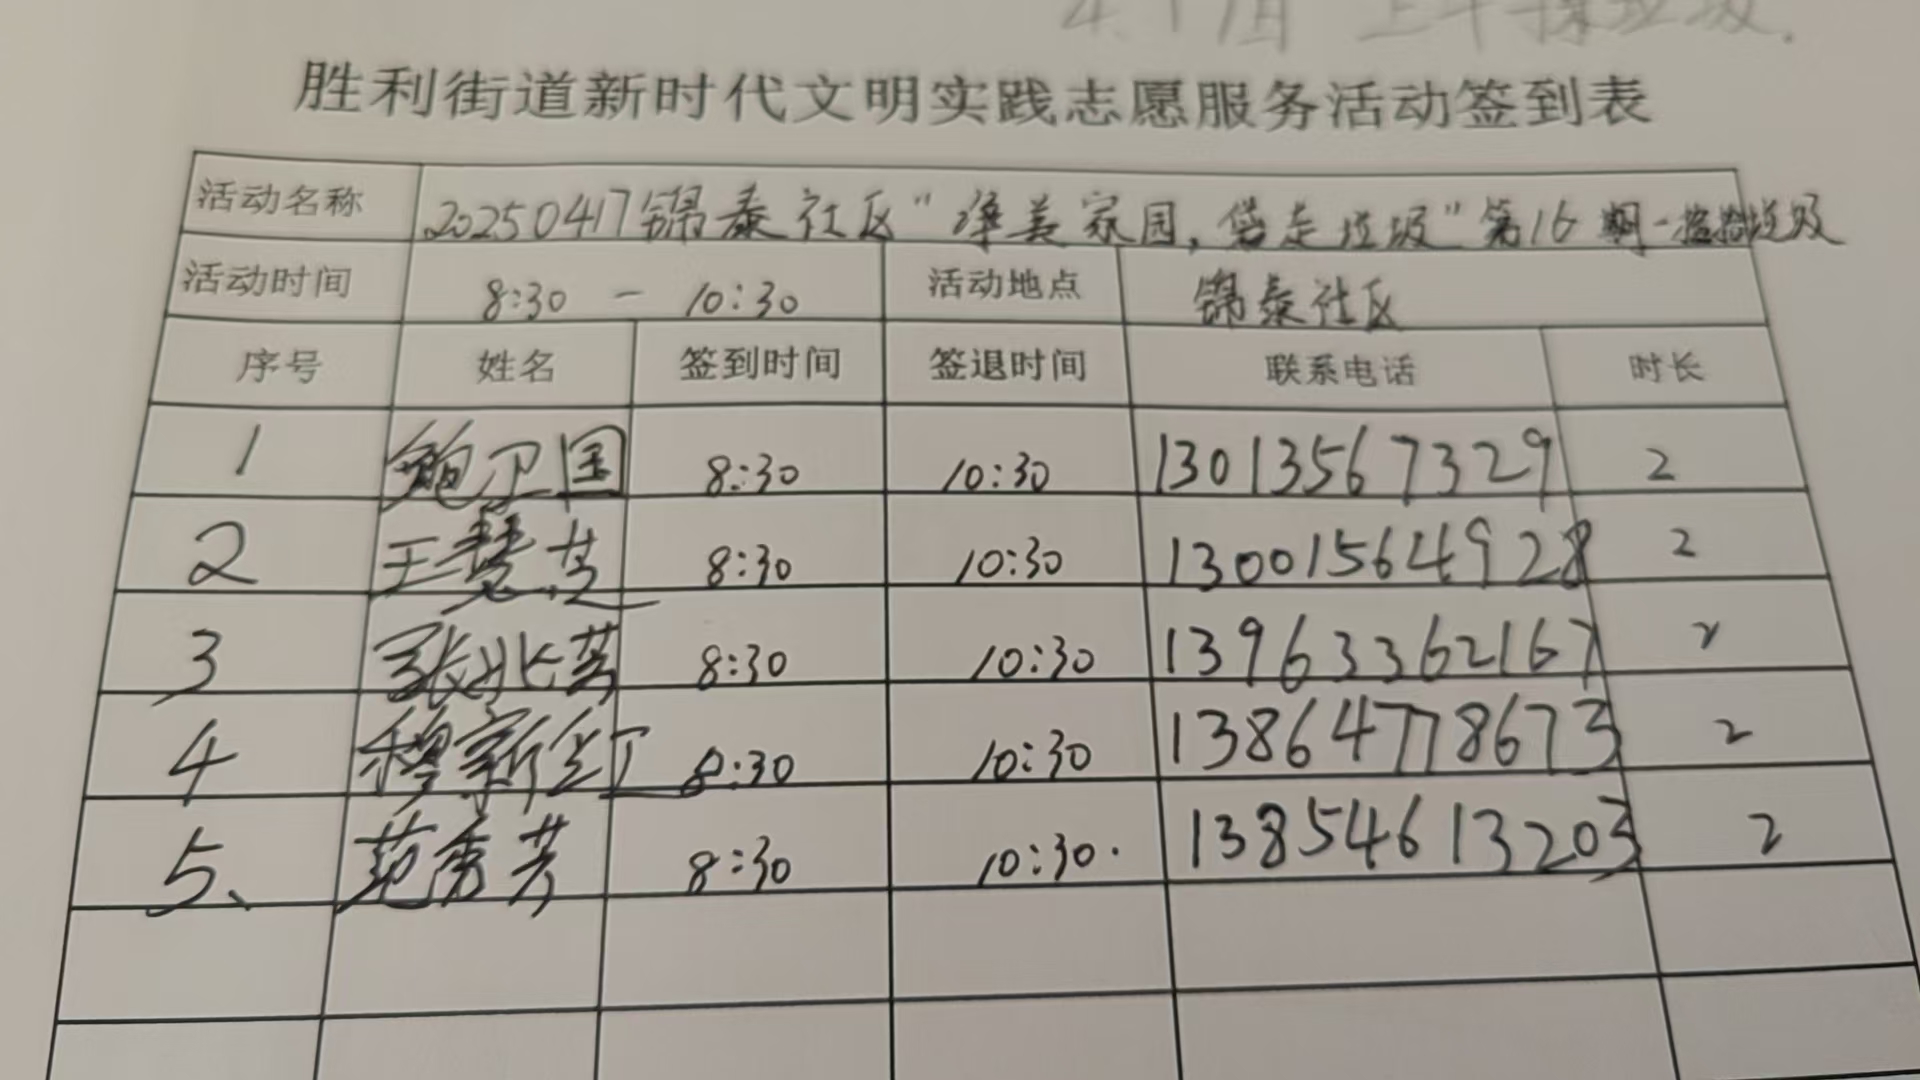 4.17日 上午捡垃圾.
胜利街道新时代文明实践志愿服务活动签到表
活动名称 20250417锦泰社区"净美家园,袋走垃圾"第16期-捡拾垃圾
活动时间 8:30 - 10:30 活动地点 锦泰社区
序号 姓名 签到时间 签退时间 联系电话 时长
1 鲍卫国 8:30 10:30 13013567329 2
2 王慧芝 8:30 10:30 13001564928 2
3 张兆芳 8:30 10:30 13963362167 2
4 穆新红 8:30 10:30 13864778673 2
5、 范秀芳 8:30 10:30. 13854613203 2